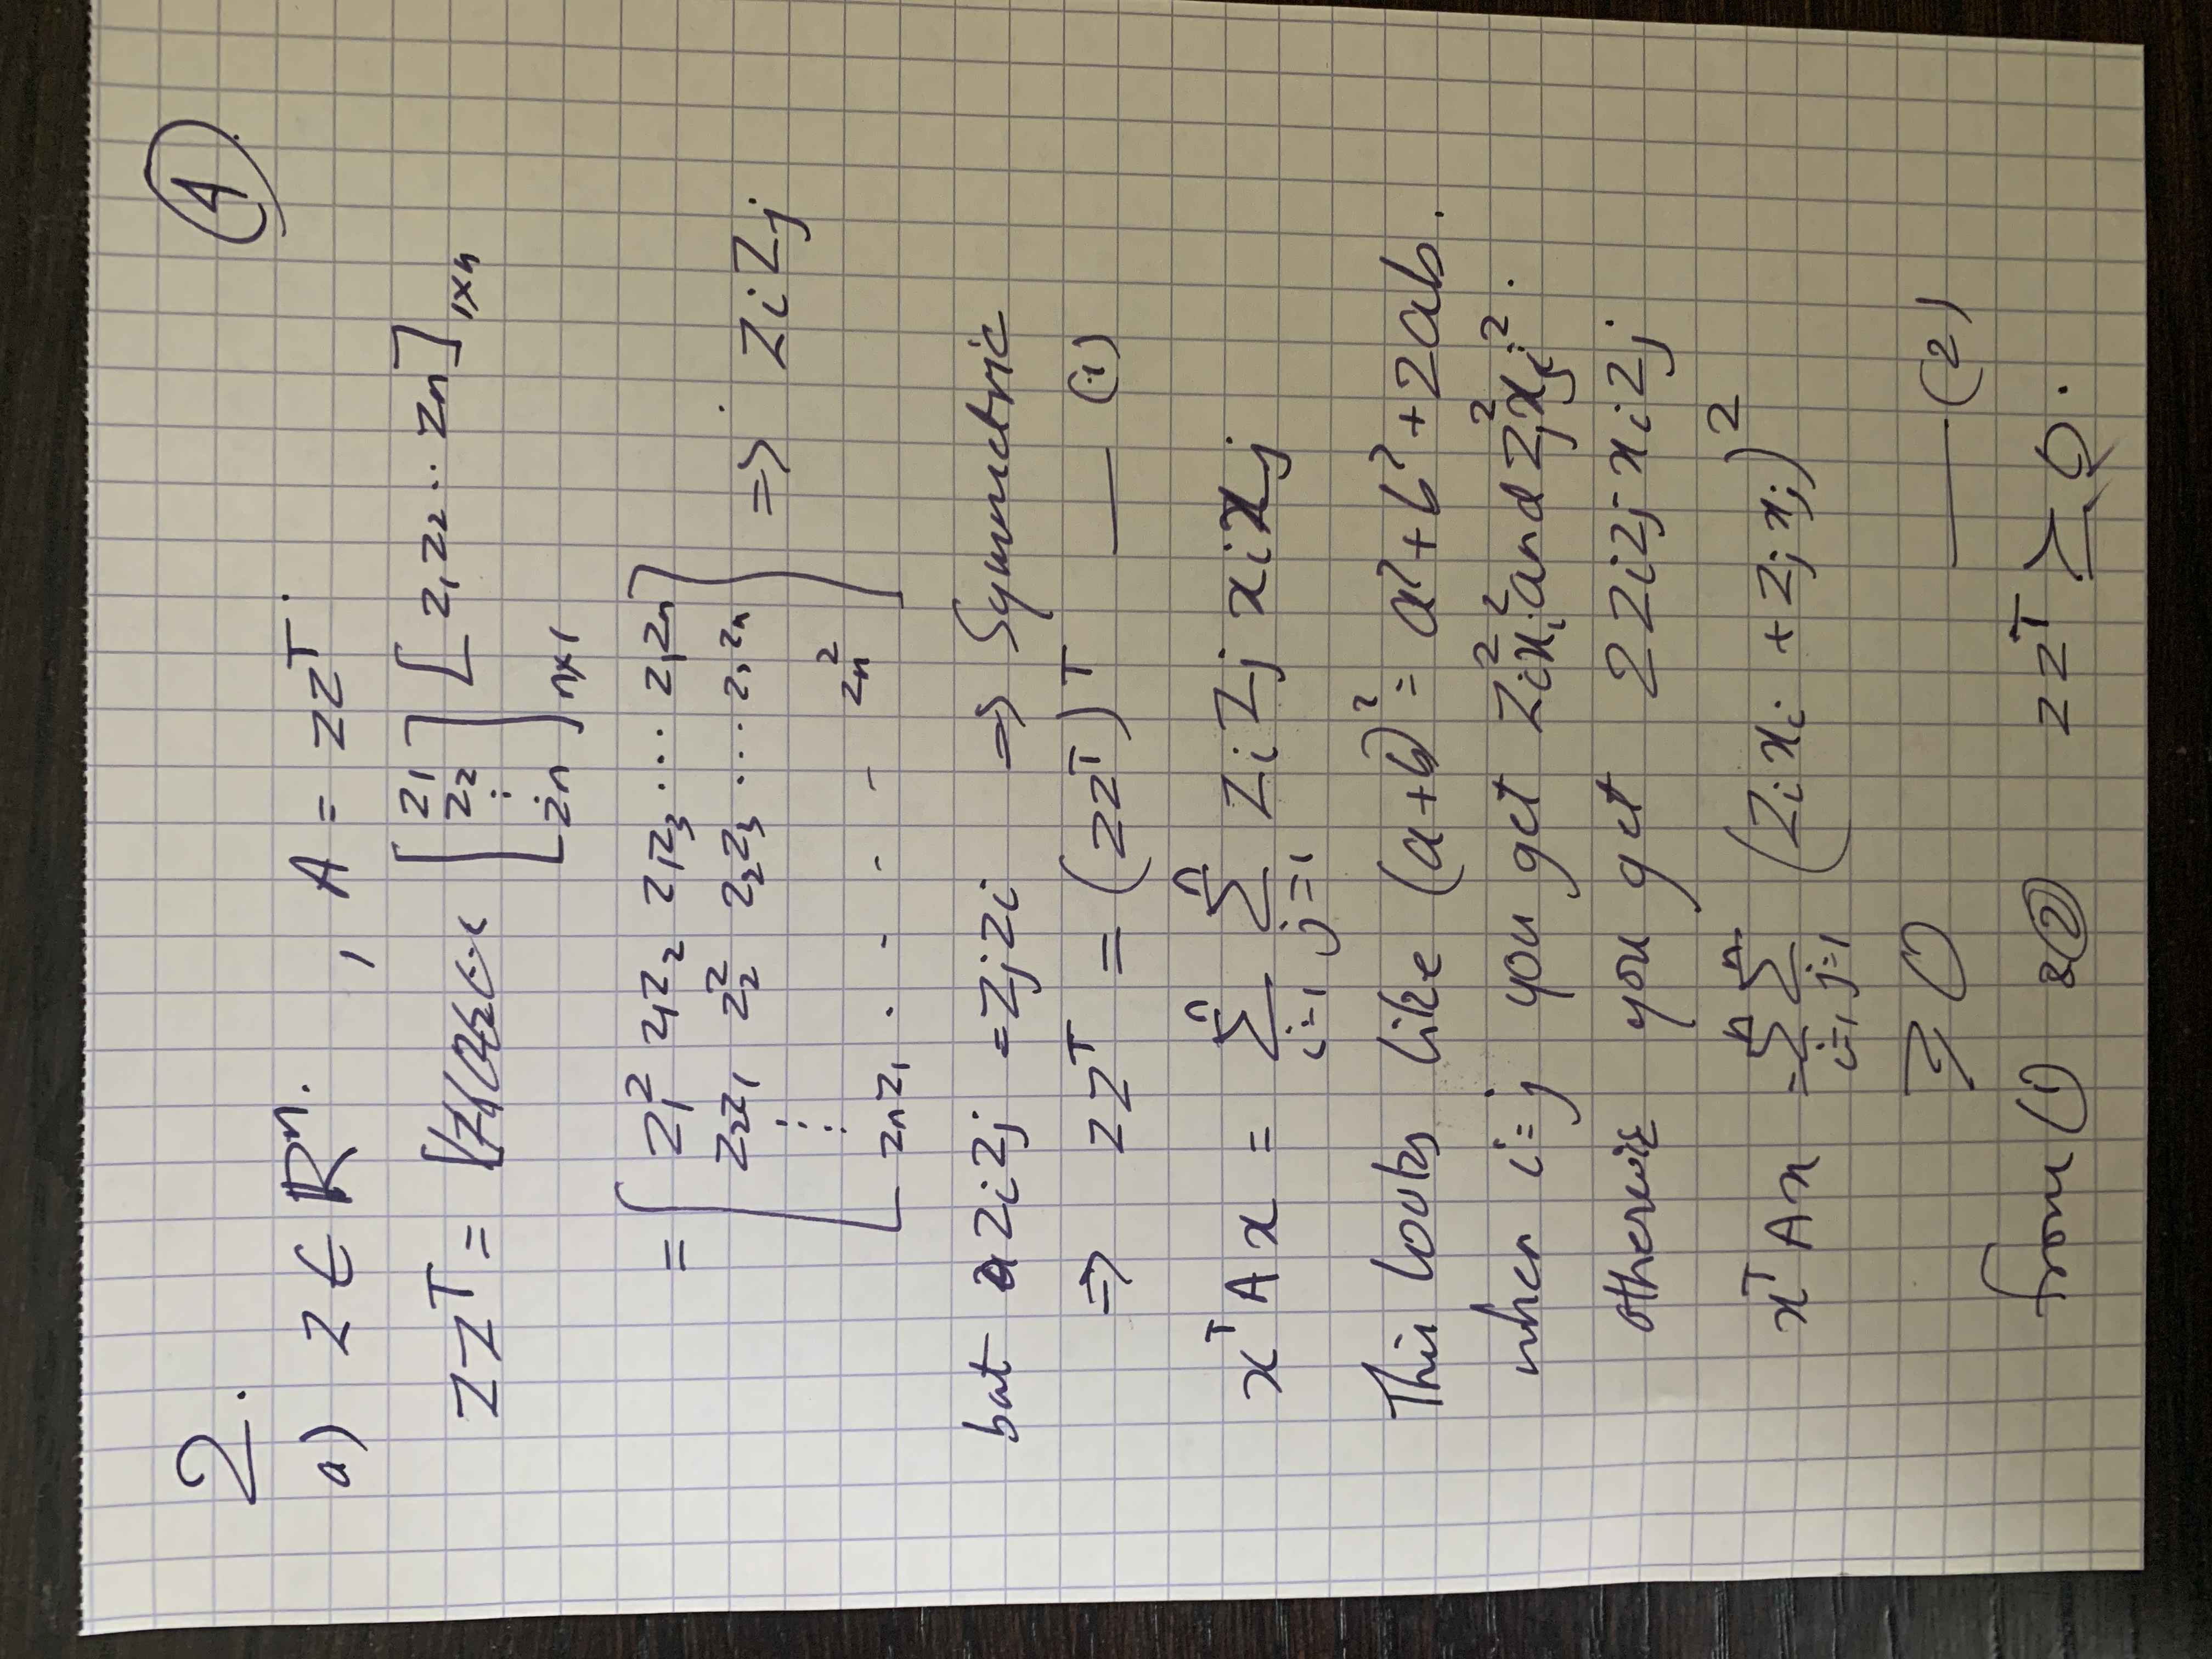 2.
④
a) z ∈ ℝⁿ. , A = zzᵀ
zzᵀ = [z₁ z₂ ⋮ zn]n×1 [z₁ z₂ ·· zn]1×n
= [z₁² z₁z₂ z₁z₃ ··· z₁zn
z₂z₁ z₂² z₂z₃ ··· z₂zn
⋮
zn²
znz₁ . - - -] => zizj
but zizj = zjzi => Symmetric
=> zzᵀ = (zzᵀ)ᵀ — (1)
xᵀAx = Σ_{i=1}^{n} Σ_{j=1}^{n} zizj xixj
This looks like (a+b)² = a²+b²+2ab.
when i=j you get zi²xi² and zj²xj².
otherwise you get 2zizjxizj
xᵀAx = Σ_{i=1}^{n} Σ_{j=1}^{n} (zixi + zjxj)²
≥ 0 — (2)
from ① & ② zzᵀ ⪰ 0.